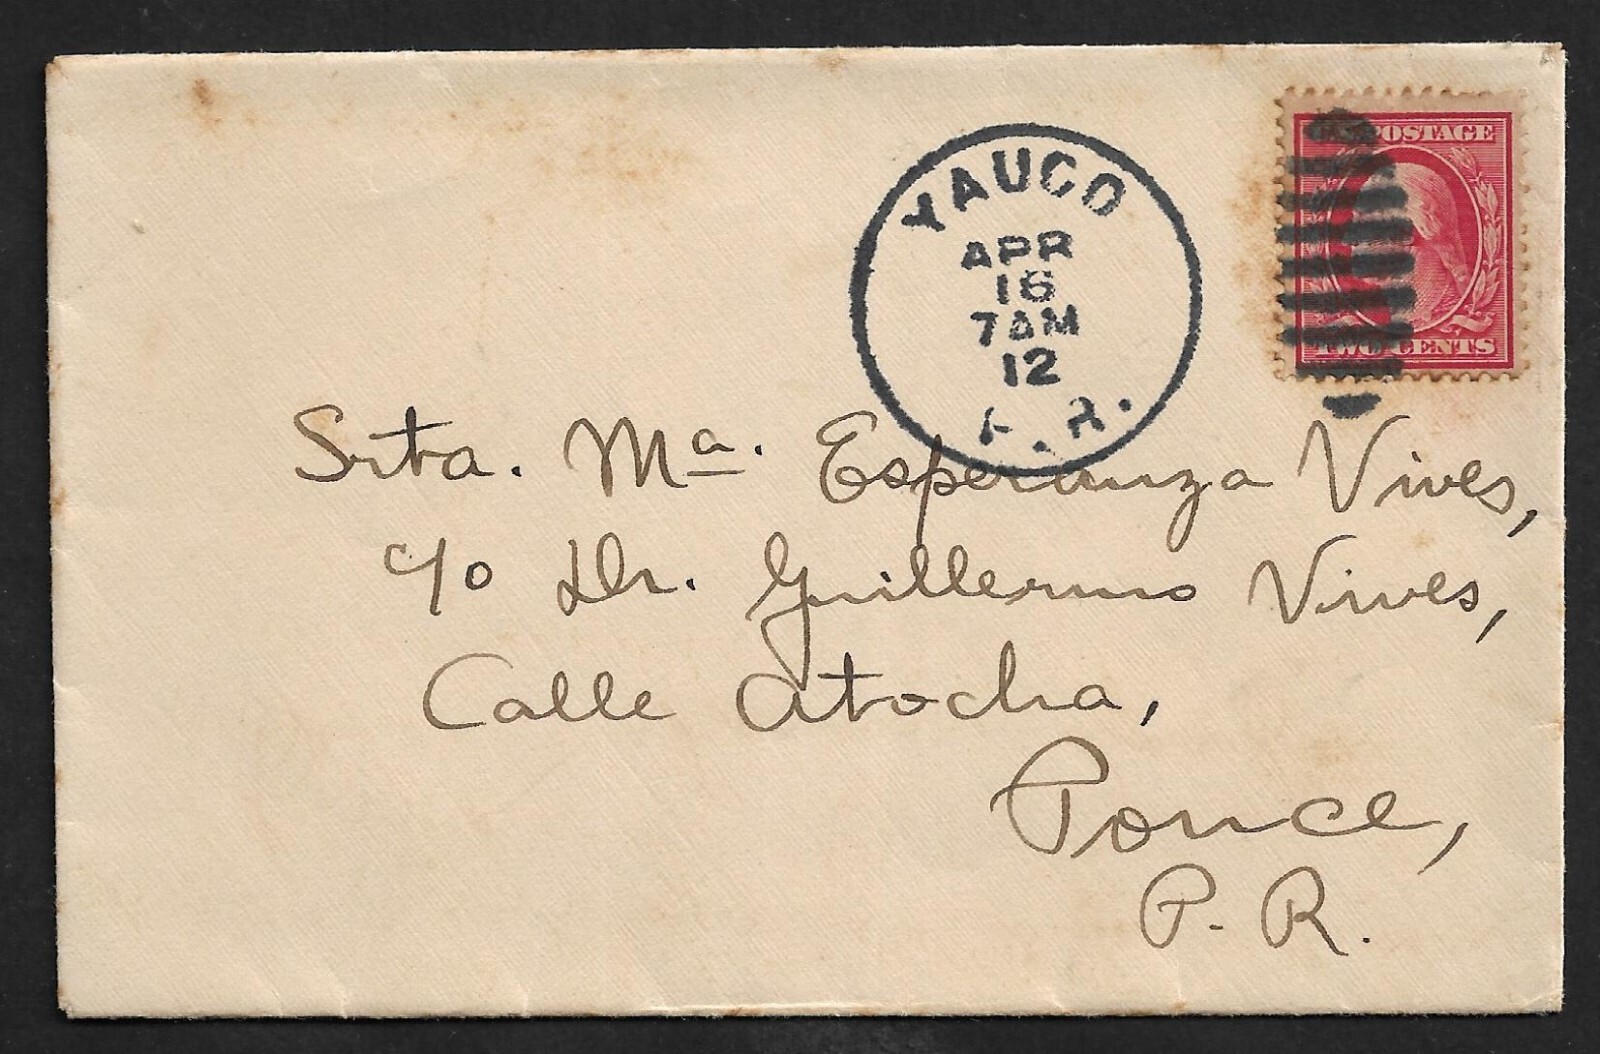 YAUCO
APR
16
7 AM
12
P.R.
U.S. POSTAGE
TWO CENTS
Srta. Mª. Esperanza Vives,
c/o Dr. Guillermo Vives,
Calle Atocha,
Ponce,
P. R.